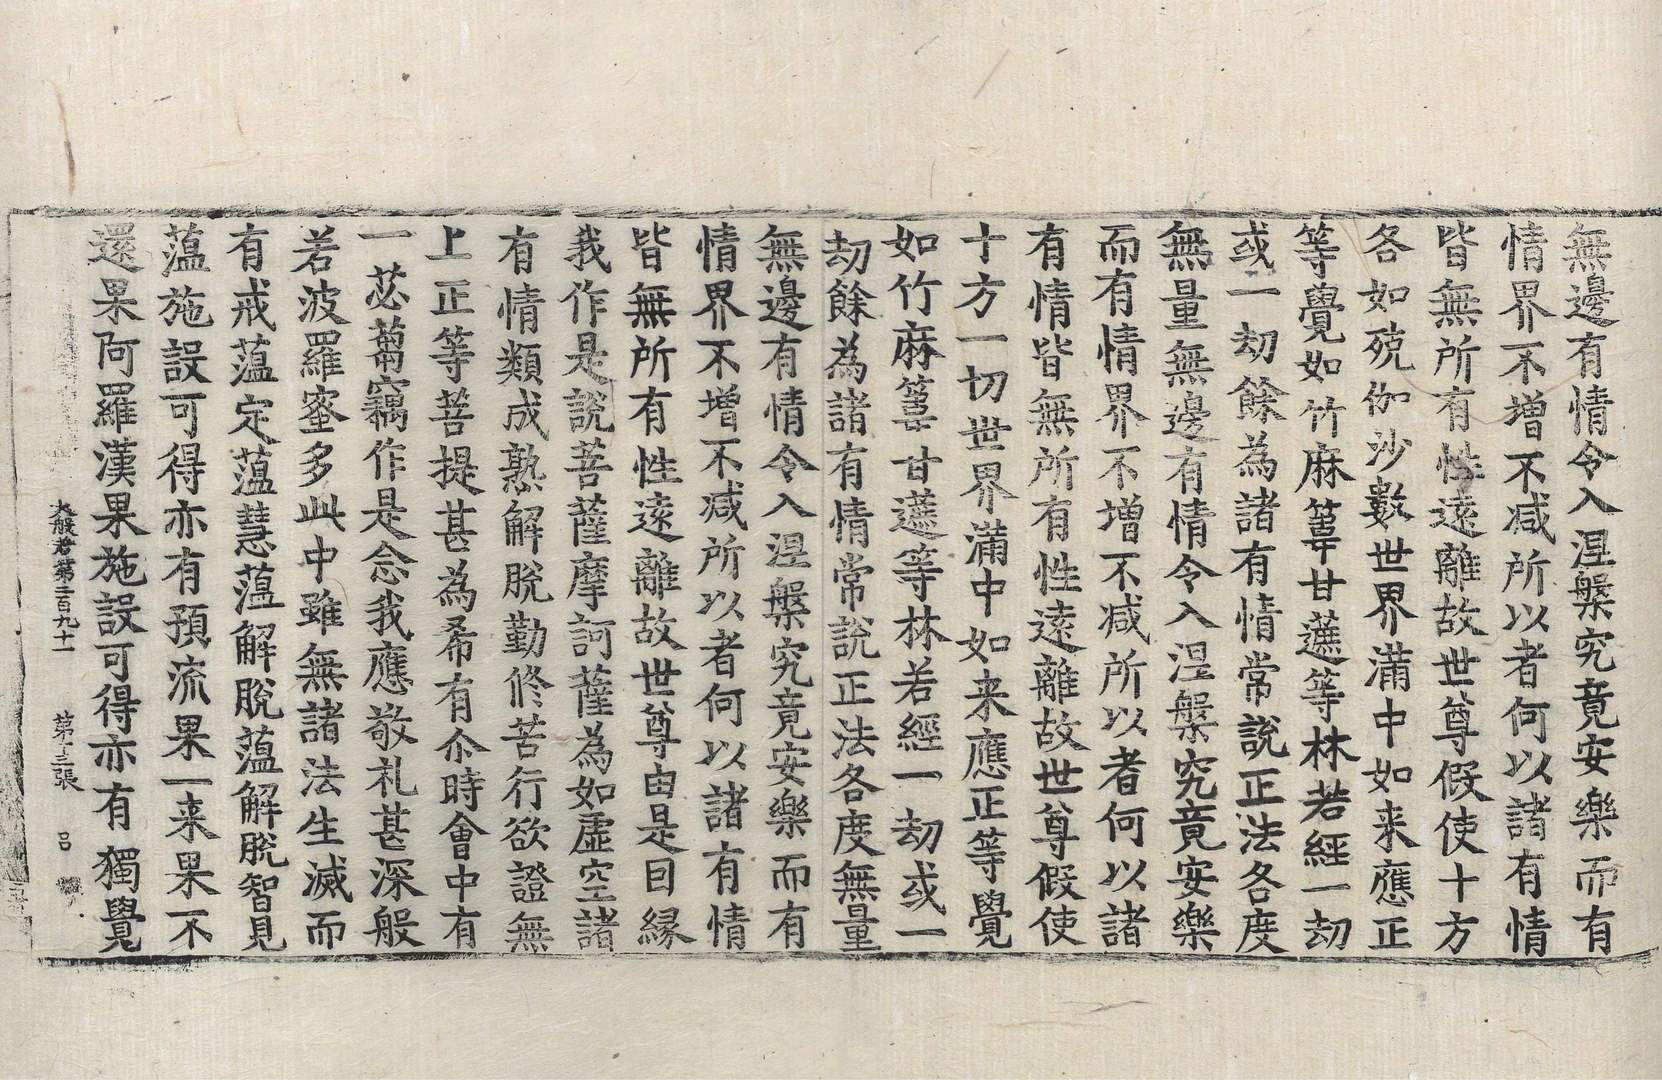 無邊有情令入涅槃究竟安樂而有
情界不增不減所以者何以諸有情
皆無所有性遠離故世尊假使十方
各如殑伽沙數世界滿中如来應正
等覺如竹麻䓬甘蔗等林若經一劫
或一劫餘為諸有情常說正法各度
無量無邊有情令入涅槃究竟安樂
而有情界不增不減所以者何以諸
有情皆無所有性遠離故世尊假使
十方一切世界滿中如来應正等覺
如竹麻䓬甘蔗等林若經一劫或一
劫餘為諸有情常說正法各度無量
無邊有情令入涅槃究竟安樂而有
情界不增不減所以者何以諸有情
皆無所有性遠離故世尊由是因緣
我作是說菩薩摩訶薩為如虛空諸
有情類成熟解脫勤修苦行欲證無
上正等菩提甚為希有尒時會中有
一苾蒭竊作是念我應敬礼甚深般
若波羅蜜多此中雖無諸法生滅而
有戒蕰定蕰慧蕰解脫蕰解脫智見
蕰施設可得亦有預流果一来果不
還果阿羅漢果施設可得亦有獨覺
大般若第三百九十一 第十三張 呂